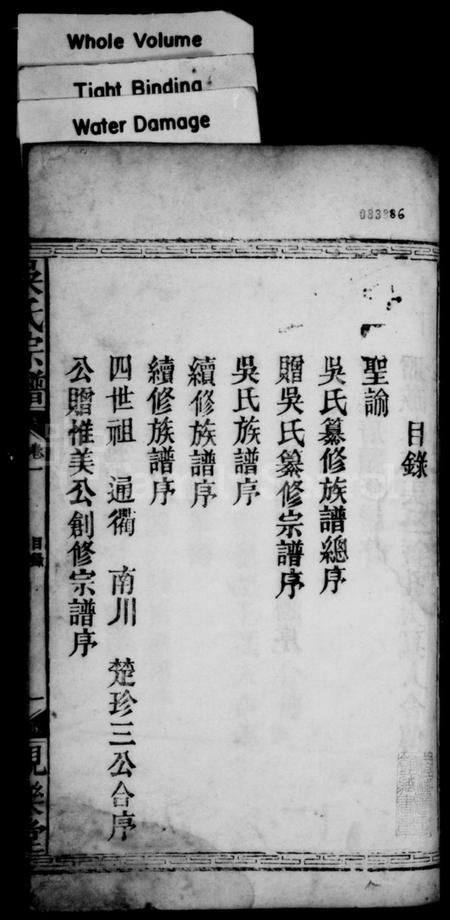 Whole Volume
Tight Binding
Water Damage
083886
目錄
聖諭
吳氏纂修族譜總序
贈吳氏纂修宗譜序
吳氏族譜序
續修族譜序
續修族譜序
四世祖 通衢 南川 楚珍三公合序
公贈惟美公創修宗譜序
吳氏宗譜
卷一
目錄
一